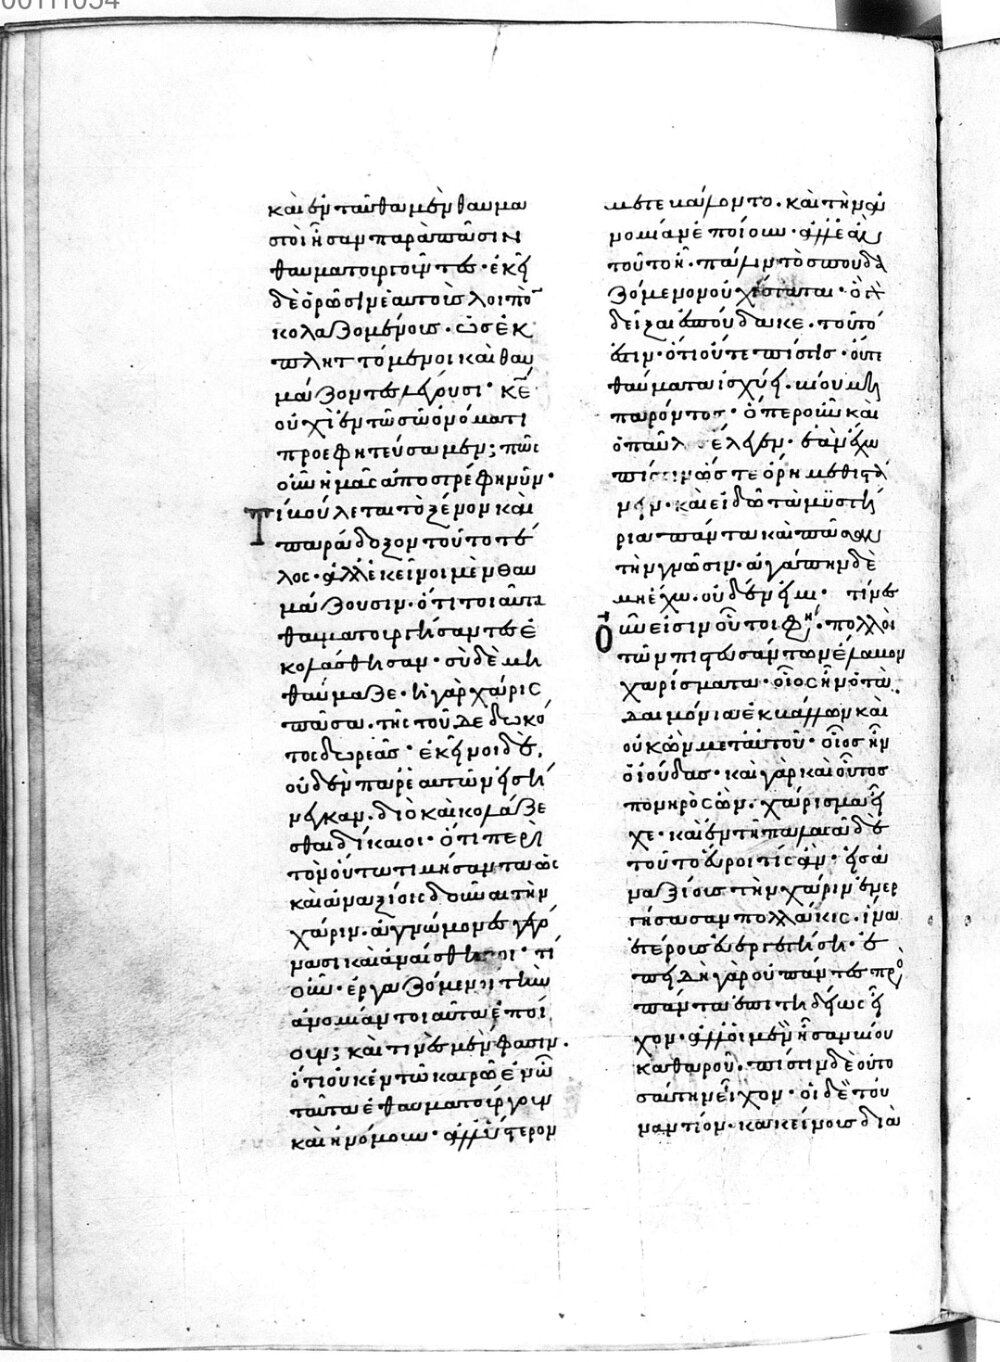 καὶ ἐνταῦθα μὲν θαυμα
στοὶ ἦσαν παρὰ πᾶσιν
θαυματουργοῦντες· ἐκεῖ
δὲ ὁρῶσιν ἑαυτοὺς λοιπὸ
κολαζομένους· ὡς ἐκ
πληττόμενοι καὶ θαυ
μάζοντες λέγουσι· κε
οὐχὶ ἐν τῶ σῶ ὀνόματι
προεφητεύσαμεν; πῶς
οὖν ἡμᾶς ἀποστρέφη νῦν·
Τί βούλεται τὸ ξένον καὶ
παράδοξον τοῦτο τέ
λος· ἀλλ' ἐκεῖνοι μὲν θαυ
μάζουσιν· ὅτι τοιαῦτα
θαυματουργήσαντες ἐ
κολάσθησαν· σὺ δὲ μὴ
θαύμαζε· ἡ γὰρ χάρις
πᾶσα· τῆς τοῦ δεδωκό
τος δωρεᾶς· ἐκεῖνοι δὲ,
οὐδὲν παρ' ἑαυτῶν εἰσή
νεγκαν. διὸ καὶ κολάζε
σθαι δίκαιοι· ὅτι περὶ
τὸν οὕτω τιμήσαντα ὡς
καὶ ἀναξίοις δοῦναι τὴν
χάριν. ἀγνώμονες γεγό
νασι καὶ ἀναίσθητοι· τί
οὖν· ἐργαζόμενοι τὴν
ἀνομίαν τοιαῦτα ἐποί
ουν; καὶ τινὲς μὲν φασιν.
ὅτι οὐκ ἐν τῶ καιρῶ ἐν ὧ
ταῦτα ἐθαυματούργουν
καὶ ἠνόμουν· ἀλλ' ὕστερον
μετεβάλοντο· καὶ τὴν ἀ
νομίαν ἐποίουν· ἀλλ' ἐὰν
τοῦτο ἦ· πάλιν τὸ σπουδα
ζόμενον οὐχ ἵσταται· ὃ
δεῖξαι ἐσπούδακε. τοῦτό
ἐστιν· ὅτι οὔτε πίστις· οὔτε
θαύματα ἰσχύει. βίου μὴ
παρόντος· ὅπερ οὖν καὶ
ὁ παῦλος ἔλεγεν· ἐὰν ἔχω
πίστιν ὥστε ὄρη μεθιστά
νειν· καὶ εἰδῶ τὰ μυστή
ρια πάντα καὶ πᾶσαν
τὴν γνῶσιν. ἀγάπην δὲ
μὴ ἔχω. οὐδὲν εἰμι· τίνες
Οὖν εἰσιν οὗτοι φησί· πολλοὶ
τῶν πιστευσάντων ἔλαβον
χαρίσματα· οἷος ἦν ὁ τὰ
δαιμόνια ἐκβάλλων καὶ
οὐκ ὢν μετ' αὐτοῦ· οἷος ἦν
ὁ ἰούδας· καὶ γὰρ καὶ οὗτος
πονηρὸς ὤν. χάρισμα εἶ
χε· καὶ ἐν τῆ παλαιᾶ δὲ
τοῦτο εὕροι τίς ἄν· εἰς ἀ
ναξίοις τὴν χάριν ἐνερ
γήσασαν πολλάκις. ἵνα
ἑτέρους εὐεργετήση· ἐ
πειδὴ γὰρ οὐ πάντες πρὸ
πάντα ἐπιτηδείως εἶ
χον. ἀλλ' οἱ μὲν ἦσαν βίου
καθαροῦ. πίστιν δὲ οὐ το
σαύτην εἶχον· οἱ δὲ τοὐ
ναντίον. κακείνους διὰ